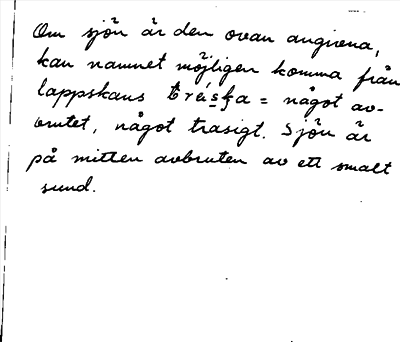 Om sjön är den ovan angivna,
kan namnet möjligen komma från
lappskans tráska = något av-
brutet, något trasigt. Sjön är
på mitten avbruten av ett smalt
sund.